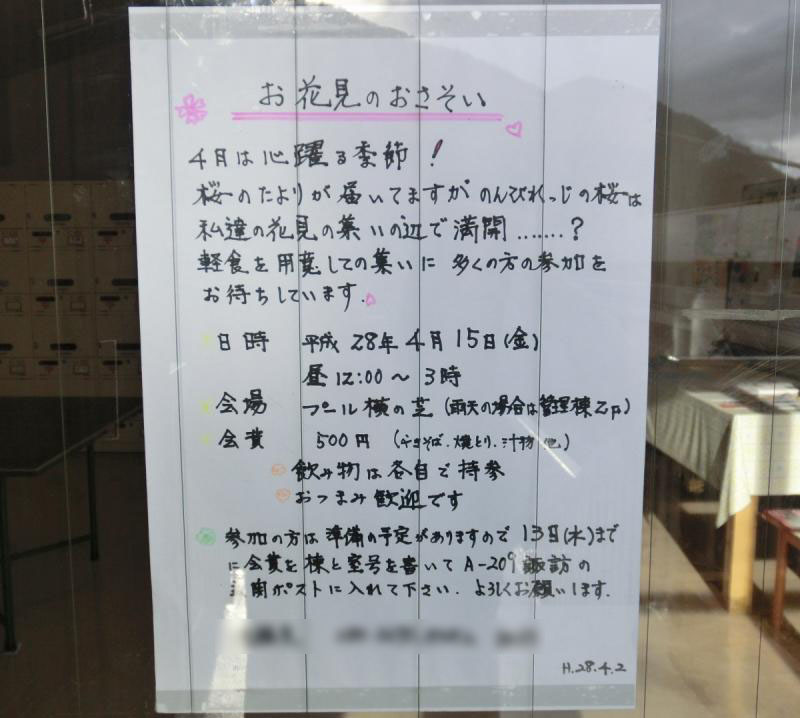 お花見のおさそい
4月は心躍る季節!
桜のたよりが届いてますが のんびれっじの桜は
私達の花見の集いの辺で満開.......?
軽食を用意しての集いに 多くの方の参加を
お待ちしています.
日時 平成28年4月15日(金)
昼12:00〜3時
会場 プール横の芝(雨天の場合は管理棟2F)
会費 500円(やきそば.焼とり.汁物 他.)
飲み物は各自で持参
おつまみ歓迎です
参加の方は準備の予定がありますので 13日(水)まで
に会費を棟と室号を書いて A-209 諏訪の
玄関ポストに入れて下さい. よろしくお願いします.
H.28.4.2